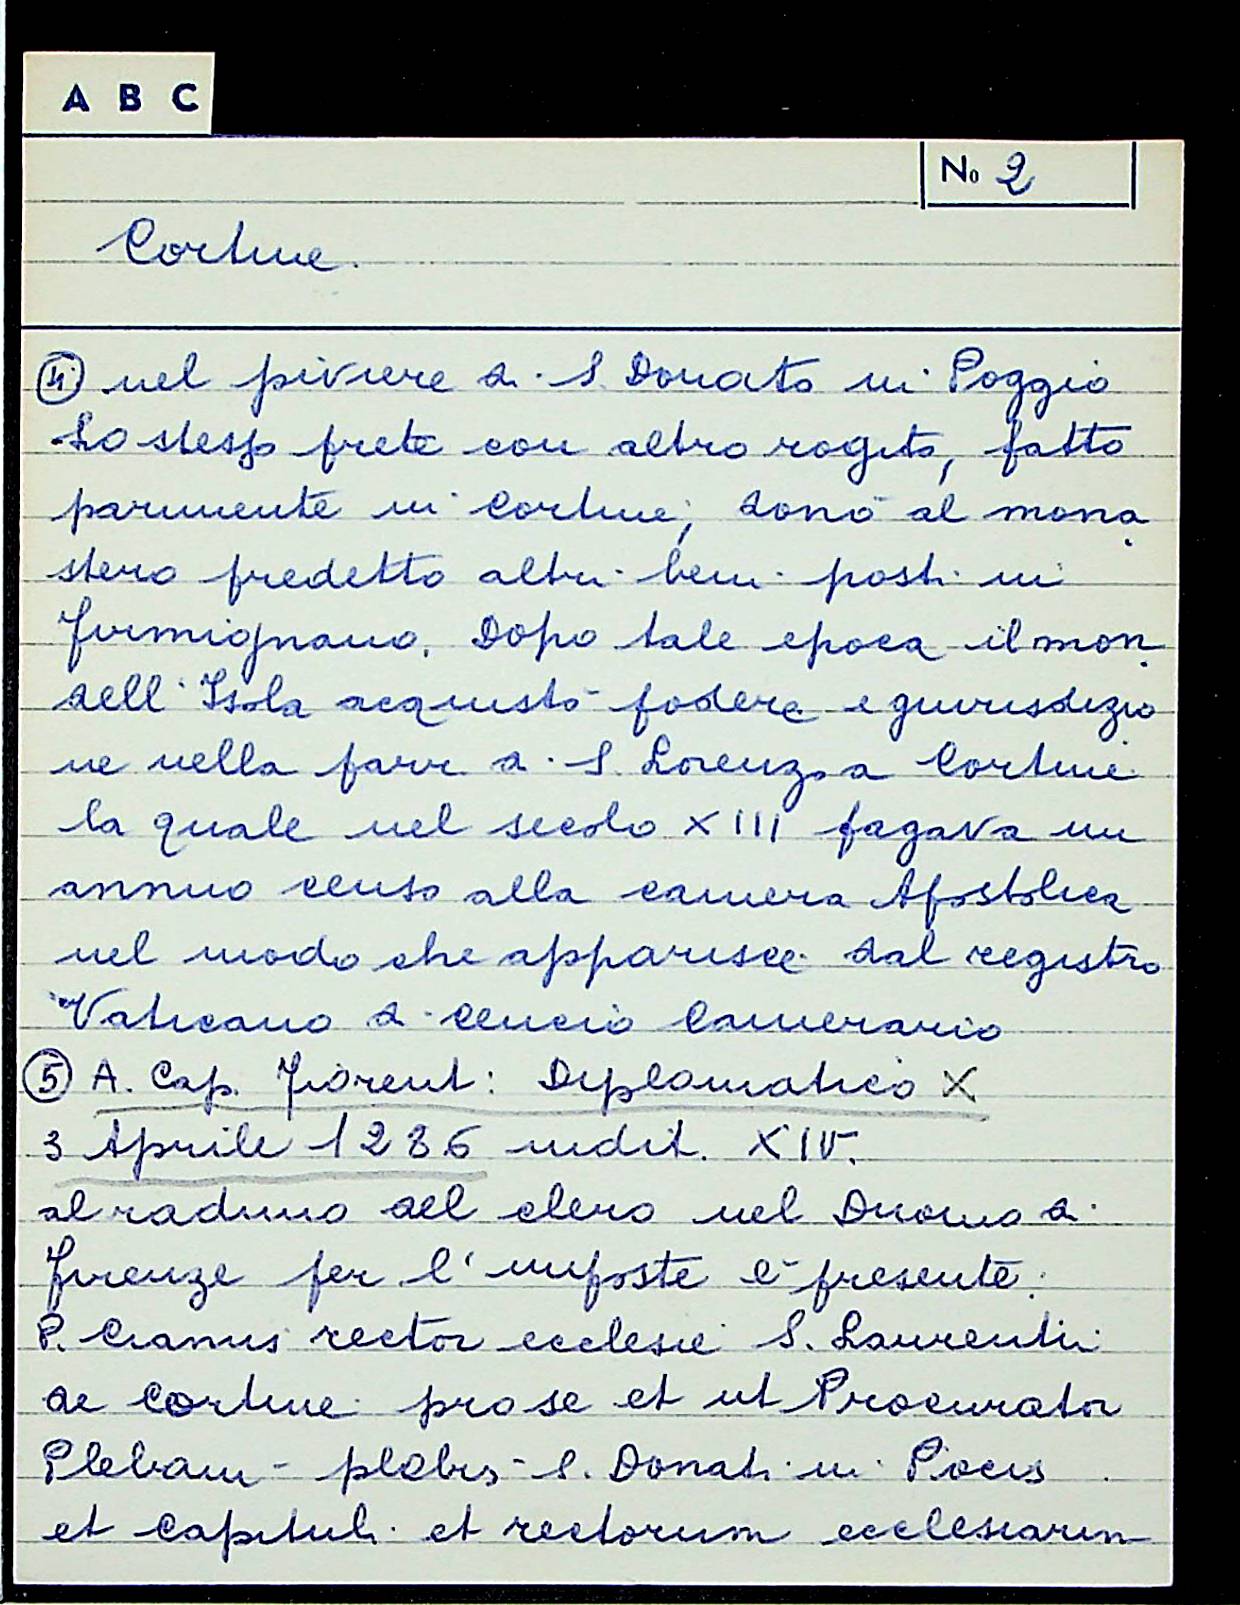 A B C
No 2
Cortine.
④ nel piviere di S. Donato in Poggio
Lo stesso prete con altro rogito, fatto
parimente in Cortine, donò al mona
stero predetto altri beni posti in
Firmignano. Dopo tale epoca il mon.
dell'Isola acquistò podere e giurisdizio
ne nella parr. di S. Lorenzo a Cortine
la quale nel secolo XIII pagava un
annuo censo alla camera Apostolica
nel modo che apparisce dal registro
Vaticano di Cencio Camerario
⑤ A. Cap. Fiorent: Diplomatico X
3 Aprile 1286 indit. XIV.
al raduno del clero nel Duomo di
Firenze per l'imposte è presente:
P. Cianus rector ecclesie S. Laurentii
de Cortine pro se et ut Procurator
Plebani - plebis - S. Donati in Pocis
et Capituli et rectorum ecclesiarum